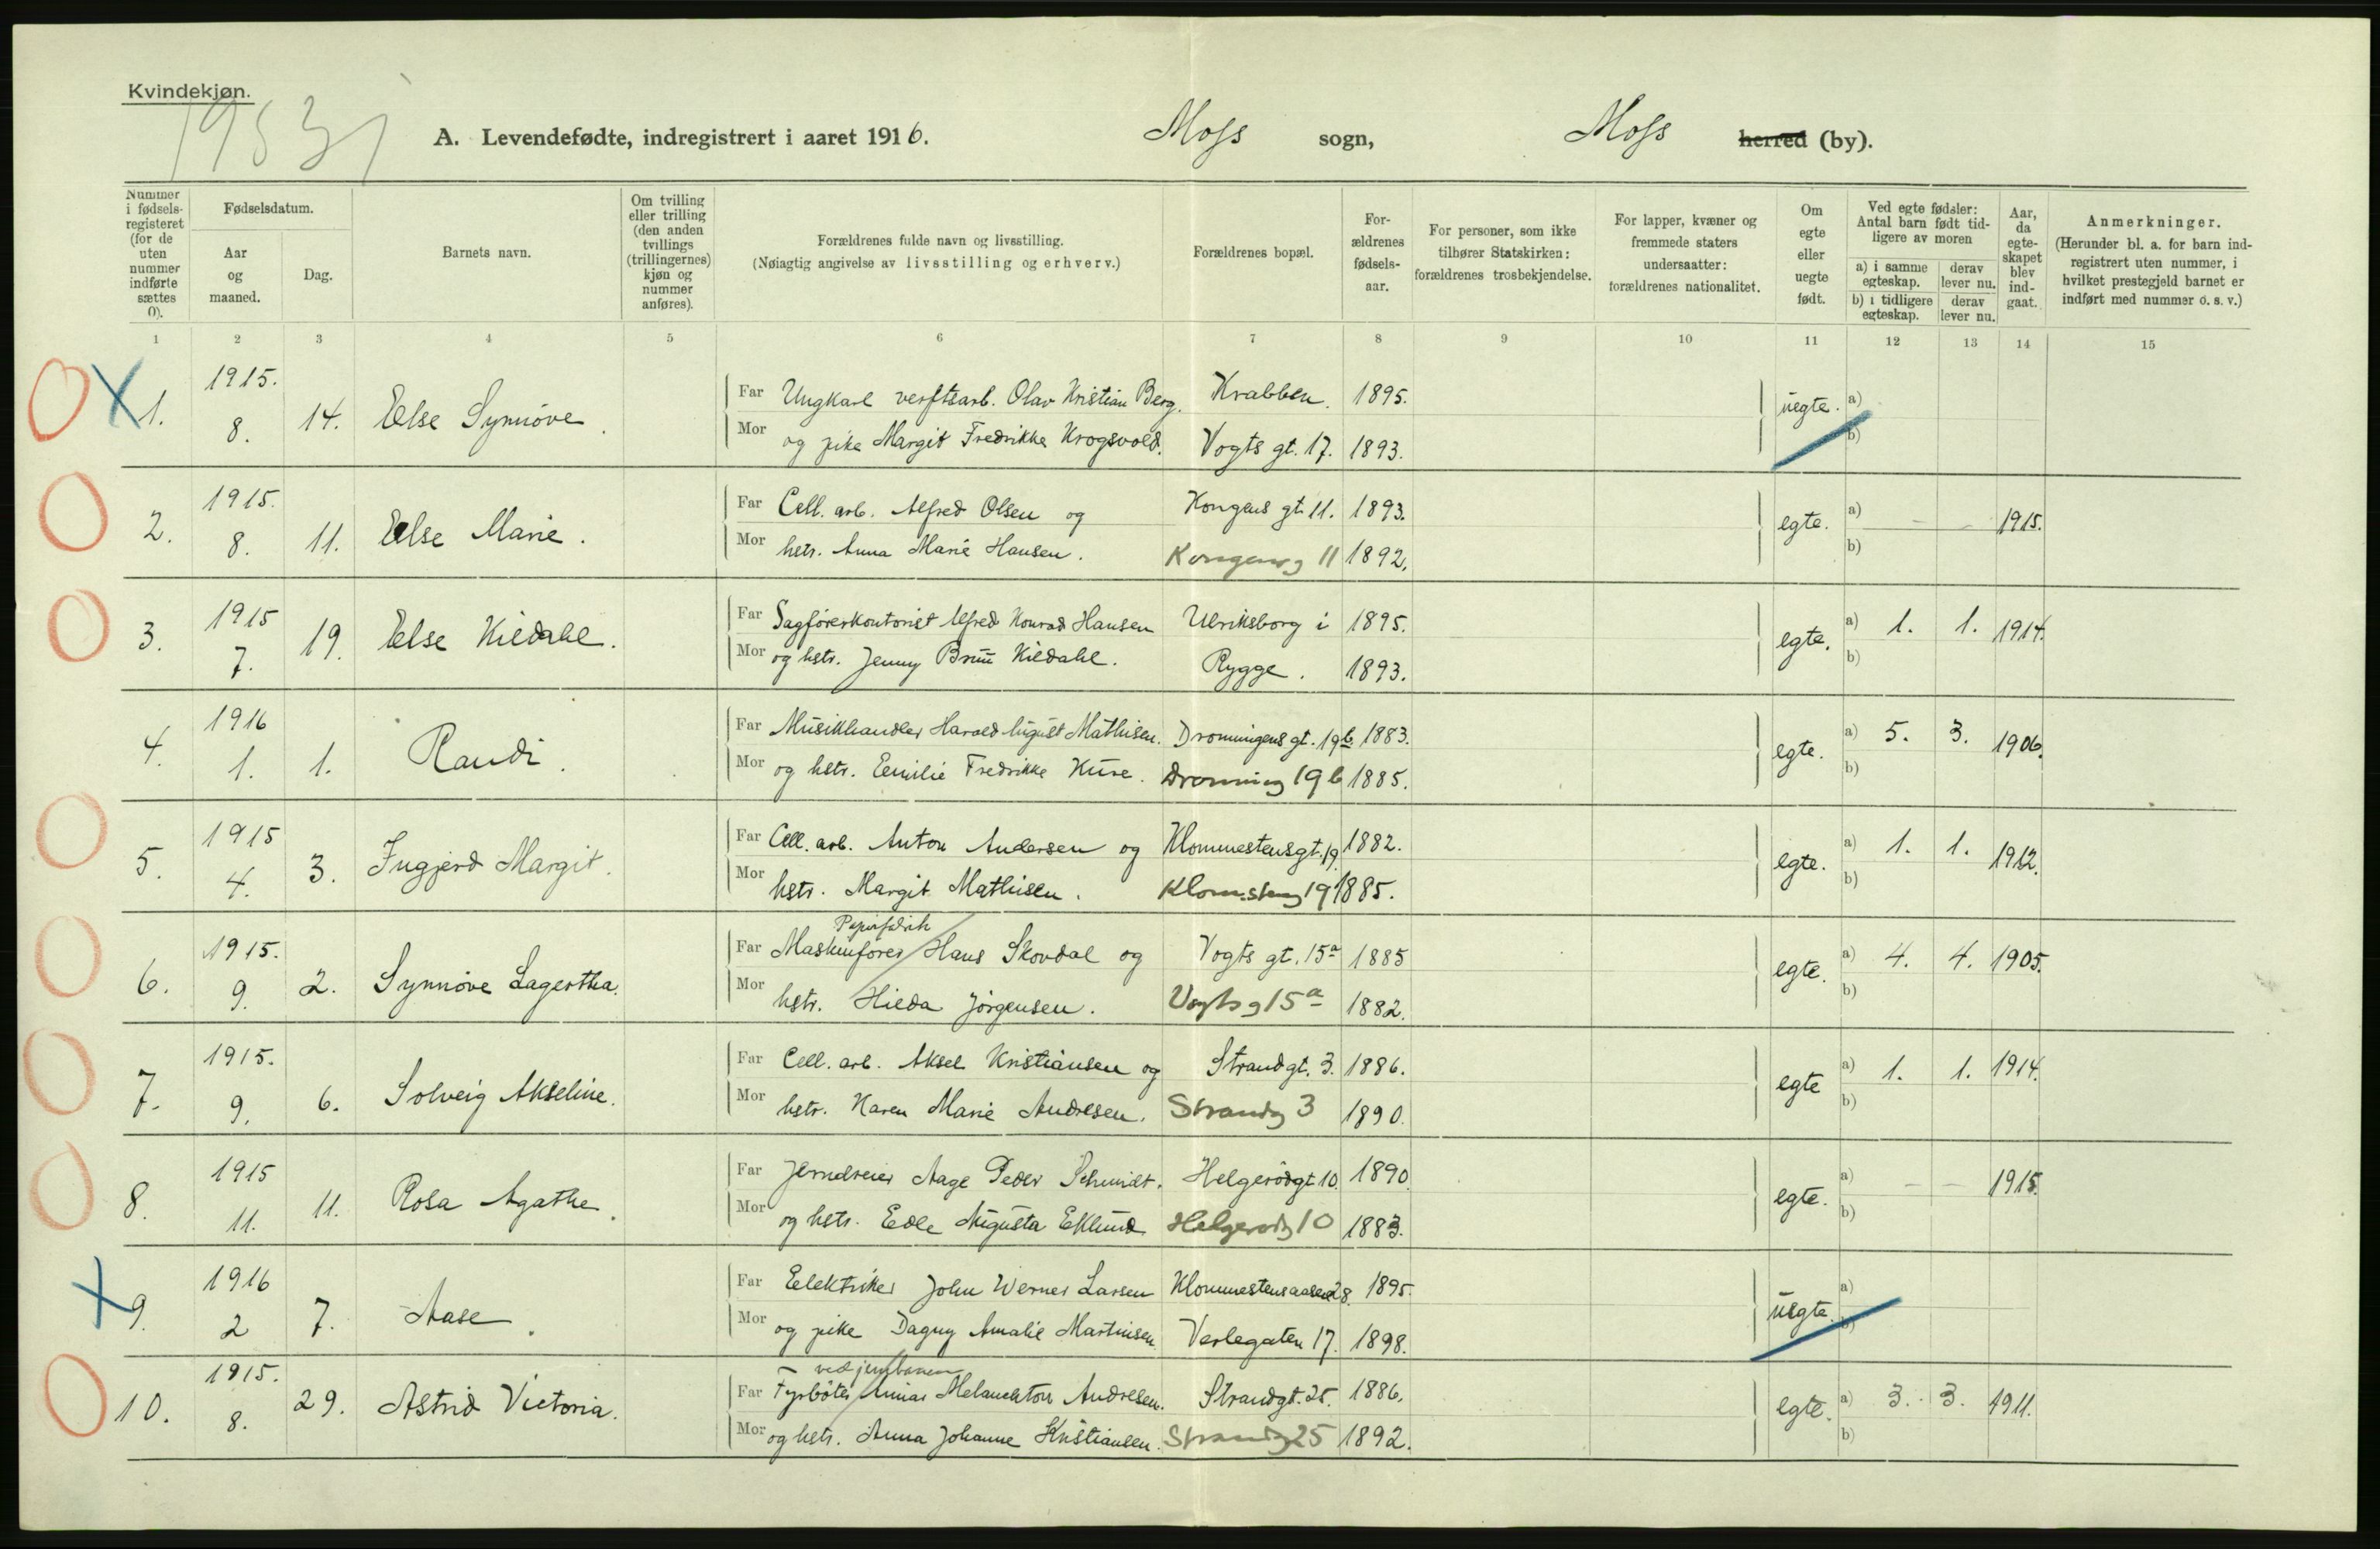 Kvindekjøn.
A. Levendefødte, indregistrert i aaret 1916. Moss sogn, Moss herred (by).
Nummer i fødselsregisteret (for de uten nummer indførte sættes 0).
Fødselsdatum.
Aar og maaned.
Dag.
Barnets navn.
Om tvilling eller trilling (den anden tvillings (trillingernes) kjøn og nummer anføres).
Forældrenes fulde navn og livsstilling.
(Nøiagtig angivelse av livsstilling og erhverv.)
Forældrenes bopæl.
For-ældrenes fødsels-aar.
For personer, som ikke tilhører Statskirken: forældrenes trosbekjendelse.
For lapper, kvæner og fremmede staters undersaatter: forældrenes nationalitet.
Om egte eller uegte født.
Ved egte fødsler: Antal barn født tidligere av moren
a) i samme egteskap. derav lever nu.
b) i tidligere egteskap. derav lever nu.
Aar, da egteskapet blev indgaat.
Anmerkninger.
(Herunder bl. a. for barn indregistrert uten nummer, i hvilket prestegjeld barnet er indført med nummer o. s. v.)
1 2 3 4 5 6 7 8 9 10 11 12 13 14 15
1. 1915. 8. 14. Else Synnöve. uegte. a) b)
Far Ungkarl verftsarb. Olav Kristian Berg. Krabben. 1895.
Mor og pike Margit Fredrikke Krogsvold. Vogts gt. 17. 1893.
2. 1915. 8. 11. Else Marie. egte. a) - - 1915. b)
Far Cell. arb. Alfred Olsen og Kongens gt. 11. 1893.
Mor hstr. Anna Marie Hansen. Kongensg 11 1892.
3. 1915 7. 19. Else Kildahl. egte. a) 1. 1. 1914. b)
Far Sagförerkontorist Alfred Konrad Hansen Ulriksborg i 1895.
Mor og hstr. Jenny Bruu Kildahl. Rygge. 1893.
4. 1916 1. 1. Randi. egte. a) 5. 3. 1906. b)
Far Musikhandler Harald August Mathisen. Dronningens gt. 19b 1883.
Mor og hstr. Emilie Fredrikke Kure. Dronning 19b 1885.
5. 1915 4. 3. Ingjerd Margit. egte. a) 1. 1. 1912. b)
Far Cell. arb. Anton Andersen og Klommestensgt. 19. 1882.
Mor hstr. Margit Mathisen. Klomsteng 19 1885.
6. 1915. 9. 2. Synnöve Lagertha. egte. a) 4. 4. 1905. b)
Papirfabrik
Far Maskinförer Hans Skovdal og Vogts gt. 15a 1885
Mor hstr. Hilda Jörgensen. Vogtsg 15a 1882.
7. 1915. 9. 6. Solveig Akseline. egte a) 1. 1. 1914. b)
Far Cell. arb. Aksel Kristiansen og Strandgt. 3. 1886.
Mor hstr. Karen Marie Andresen. Strandg 3 1890.
8. 1915 11. 11. Rosa Agathe. egte. a) - - 1915. b)
Far Jerndreier Aage Peder Schmidt. Helgerödgt 10. 1890.
Mor og hstr. Edle Augusta Eklund Helgerodg 10 1883.
9. 1916 2 7. Aase. uegte. a) b)
Far Elektriker John Werner Larsen Klommestensaasen 28. 1895.
Mor og pike Dagny Amalie Martinsen Varlegaten 17. 1898.
10. 1915. 8. 29. Astrid Victoria. egte. a) 3. 3. 1911. b)
ved jernbanen
Far Fyrböter Melanchton Andresen. Strandgt. 25. 1886.
Mor og hstr. Anna Johanne Kristiansen. Strandg 25 1892.